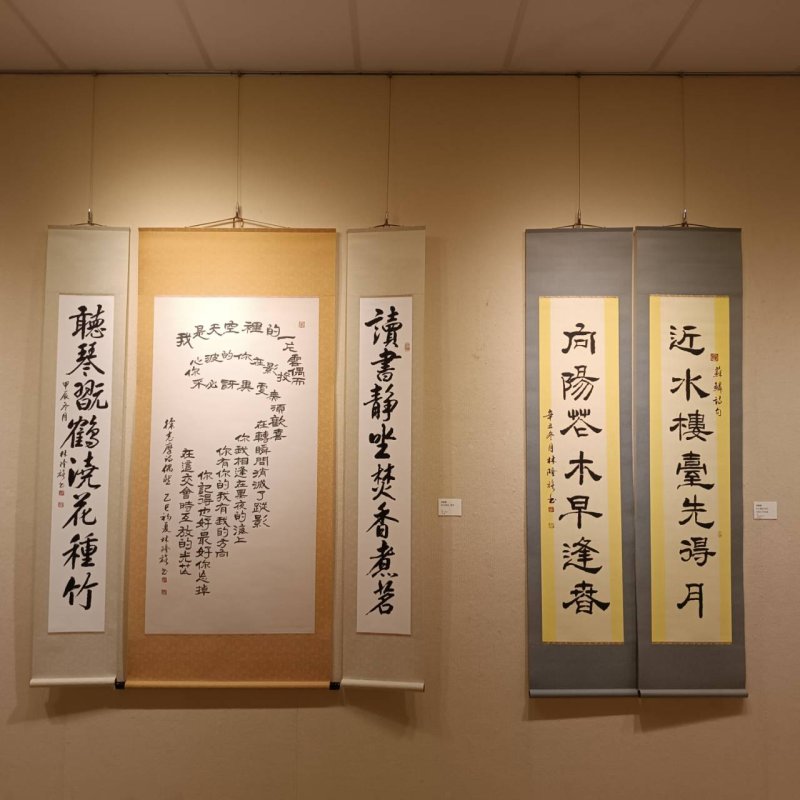 近水樓臺先得月
蘇麟詩句
向陽花木早逢春
辛丑冬月林隆
讀書靜坐焚香煮茗
我是天空裡的一片雲偶而
投影在你的波心
你不必訝異更無須歡喜
在轉瞬間消滅了蹤影
你我相逢在黑夜的海上
你有你的我有我的方向
你記得也好最好你忘掉
在這交會時互放的光芒
徐志摩詩偶然 乙巳初夏 林隆
聽琴翫鶴澆花種竹
甲辰冬月 林隆